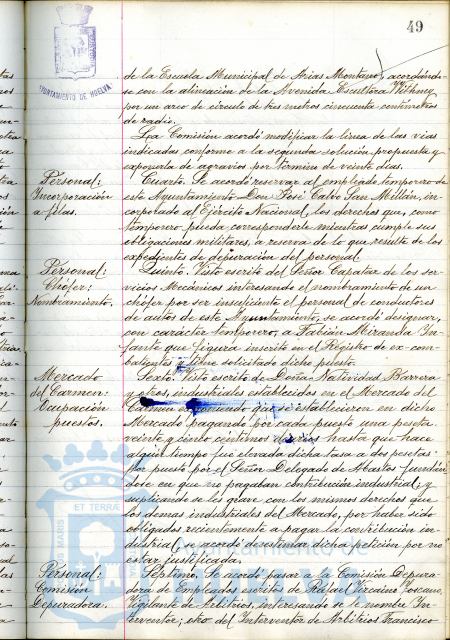 49
AYUNTAMIENTO DE HUELVA
de la Escuela Municipal de Arias Montano, acordándo-
se con la alineación de la Avenida Escultora Withney
por un arco de círculo de tres metros cincuenta centímetros
de radio.
La Comisión acordó modificar la línea de las vías
indicadas conforme a la segunda solución propuesta y
exponerla de agravios por término de veinte días.
Personal:
Incorporación
a filas.
Cuarto. Se acordó reservar al empleado temporero de
este Ayuntamiento Don José Calvo San Millán, in-
corporado al Ejército Nacional, los derechos que, como
temporero pueda corresponderle mientras cumple sus
obligaciones militares, a reserva de lo que resulte de los
expedientes de depuración del personal.
Personal:
Chófer:
Nombramiento.
Quinto. Visto escrito del Señor Capataz de los ser-
vicios Mecánicos interesando el nombramiento de un
chófer por ser insuficiente el personal de conductores
de autos de este Ayuntamiento, se acordó designar,
con carácter temporero, a Fabián Miranda In-
fante que figura inscrito en el Registro de ex-com-
batientes y tiene solicitado dicho puesto.
Mercado
del Carmen:
Ocupación
puestos.
Sexto. Visto escrito de Doña Natividad Barroso
y otros, industriales establecidos en el Mercado del
Carmen exponiendo que se establecieron en dicho
Mercado pagando por cada puesto una peseta
veinte y cinco céntimos diarios hasta que hace
algún tiempo fué elevada dicha tasa a dos pesetas
por puesto por el Señor Delegado de Abastos fundán-
dose en que no pagaban contribución industrial, y
suplicando se les grave con los mismos derechos que
los demás industriales del Mercado, por haber sido
obligados recientemente a pagar la contribución in-
dustrial, se acordó desestimar dicha petición por no
estar justificada.
Personal:
Comisión
Depuradora.
Séptimo. Se acordó pasar a la Comisión Depura-
dora de Empleados escritos de Rafael Vizcaino Toscano,
Vigilante de Arbitrios, interesando se le nombre In-
terventor; otro del Interventor de Arbitrios Francisco